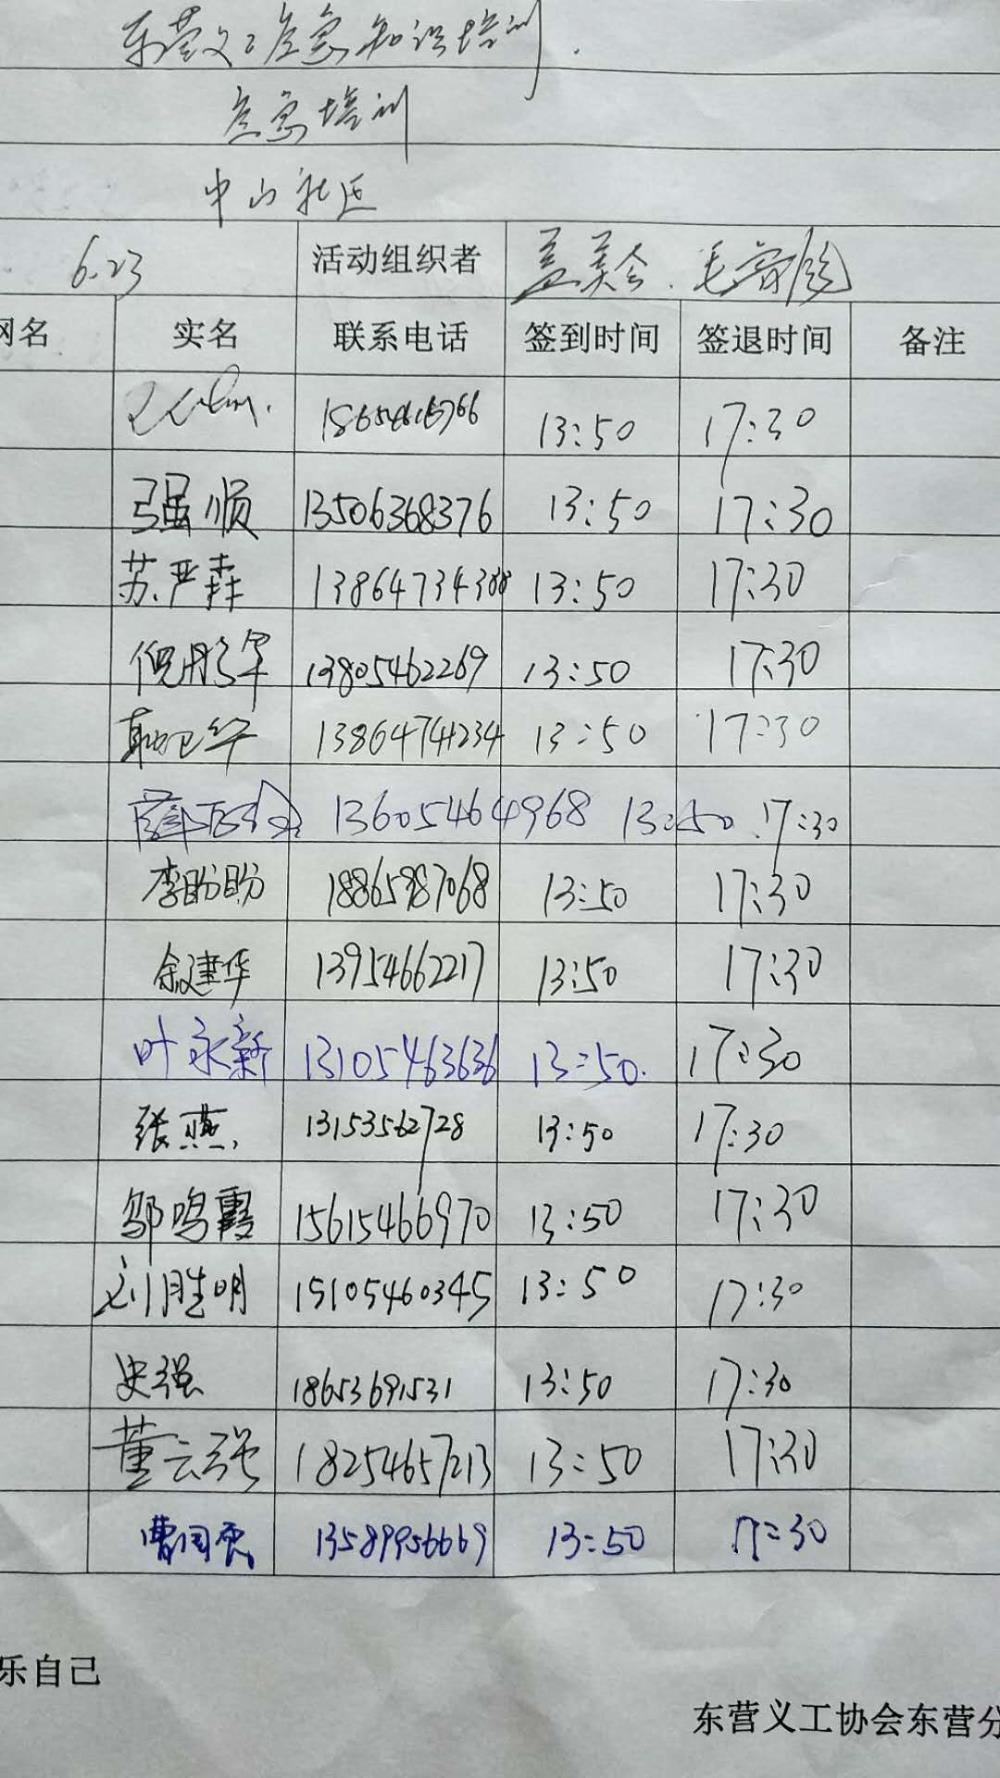 东营义工应急知识培训
应急培训
中山社区
6.23 活动组织者 孟美会、毛
网名 实名 联系电话 签到时间 签退时间 备注
13:50 17:30
强顺 13506368376 13:50 17:30
苏严森 13864734388 13:50 17:30
倪彤军 13805462269 13:50 17:30
耿卫华 13864741234 13:50 17:30
薛 13605464968 13:50 17:30
李盼盼 18865987068 13:50 17:30
余建华 13954662217 13:50 17:30
叶永新 13105463636 13:50 17:30
张燕 13153562728 13:50 17:30
邬鸣霞 15615466970 13:50 17:30
刘胜明 15105460345 13:50 17:30
史强 18653691531 13:50 17:30
董云强 18254657213 13:50 17:30
曹国 13589956669 13:50 17:30
乐自己
东营义工协会东营分